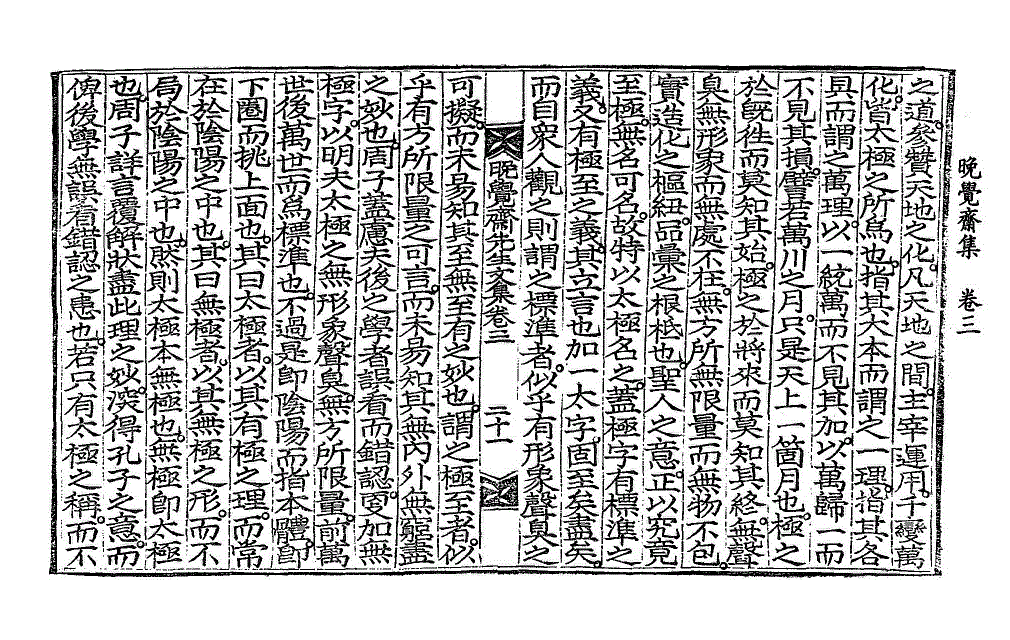 晩覺齋集　卷三
之道參贊天地之化凡天地之間主宰運用千變萬
化皆太極之所爲也指其大本而謂之一理指其各
具而謂之萬理以一統萬而不見其加以萬歸一而
不見其損譬若萬川之月只是天上一箇月也極之
於旣徃而莫知其始極之於將來而莫知其終無聲
臭無形象而無處不在無方所無限量而無物不包
實造化之樞紐品彙之根柢也聖人之意正以究竟
至極無名可名故特以太極名之蓋極字有標準之
義又有極至之義其立言也加一太字固至矣盡矣
而自衆人觀之則謂之標準者似乎有形象聲臭之
晩覺齋先生文集卷三　二十一
可擬而未易知其至無至有之妙也謂之極至者似
乎有方所限量之可言而未易知其無內外無窮盡
之妙也周子蓋慮夫後之學者誤看而錯認更加無
極字以明夫太極之無形象聲臭無方所限量前萬
世後萬世而爲標準也不過是卽陰陽而指本體卽
下圈而挑上面也其曰太極者以其有極之理而常
在於陰陽之中也其曰無極者以其無極之形而不
局於陰陽之中也然則太極本無極也無極卽太極
也周子詳言覆解狀盡此理之妙深得孔子之意而
俾後學無誤看錯認之患也若只有太極之稱而不